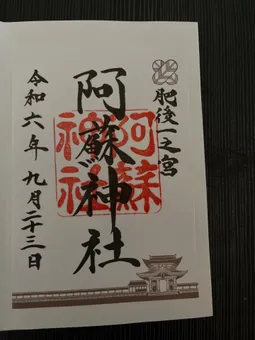 肥後一之宮
阿蘇神社
阿蘇神社
令和六年九月二十三日